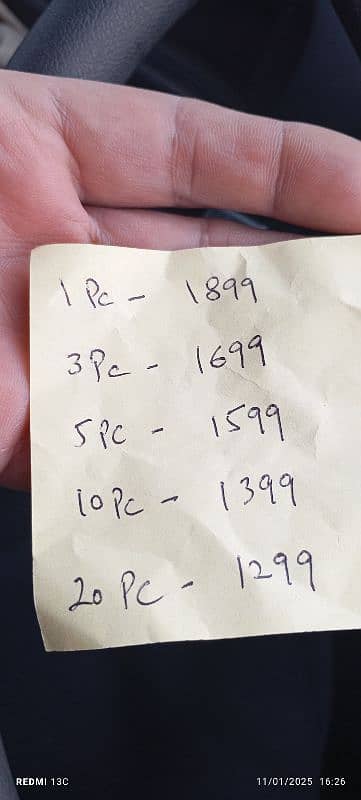 1 Pc - 1899
3Pc - 1699
5PC - 1599
10PC - 1399
20 PC - 1299
REDMI 13C
11/01/2025 16:26